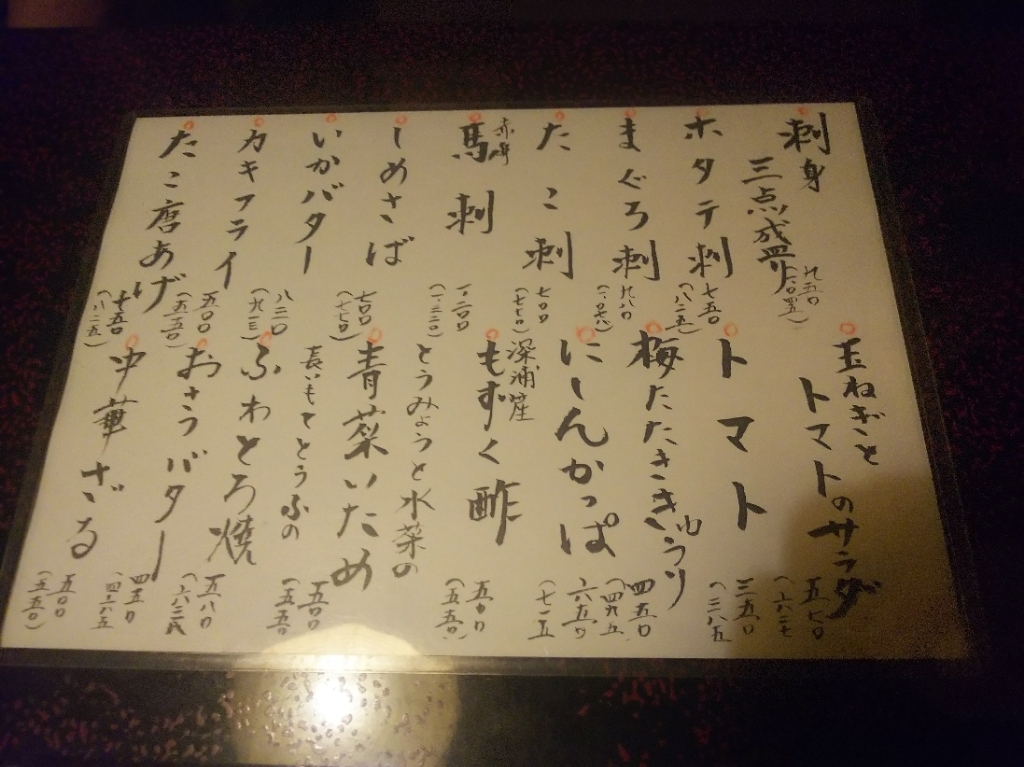 刺身
三点盛り
九五〇
(一、〇四五)
ホタテ刺
七五〇
(八二五)
まぐろ刺
九八〇
(一、〇七八)
たこ刺
七〇〇
(七七〇)
赤身
馬刺
一、二〇〇
(一、三二〇)
しめさば
七〇〇
(七七〇)
いかバター
八三〇
(九一三)
カキフライ
五〇〇
(五五〇)
たこ唐あげ
七五〇
(八二五)
玉ねぎと
トマトのサラダ
五七〇
(六二七)
トマト
三五〇
(三八五)
梅たたききゅうり
四五〇
(四九五)
にしんかっぱ
六五〇
(七一五)
深浦産
もずく酢
五〇〇
(五五〇)
とうみょうと水菜の
青菜いため
五〇〇
(五五〇)
長いもととうふの
ふわとろ焼
五八〇
(六三八)
バター
中華ざる
五〇〇
(五五〇)